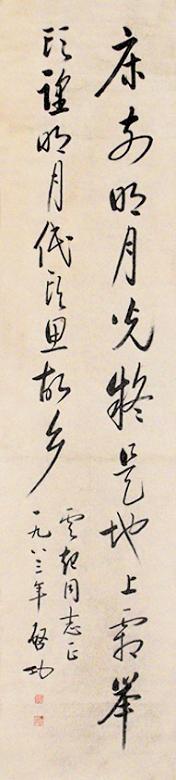 床前明月光疑是地上霜举
头望明月低头思故乡
云起同志正
一九八三年 启功